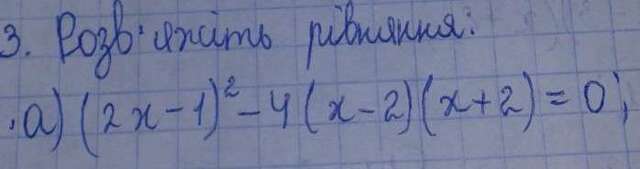 3. Розв'яжіть рівняння:
а) (2x-1)²-4(x-2)(x+2)=0;